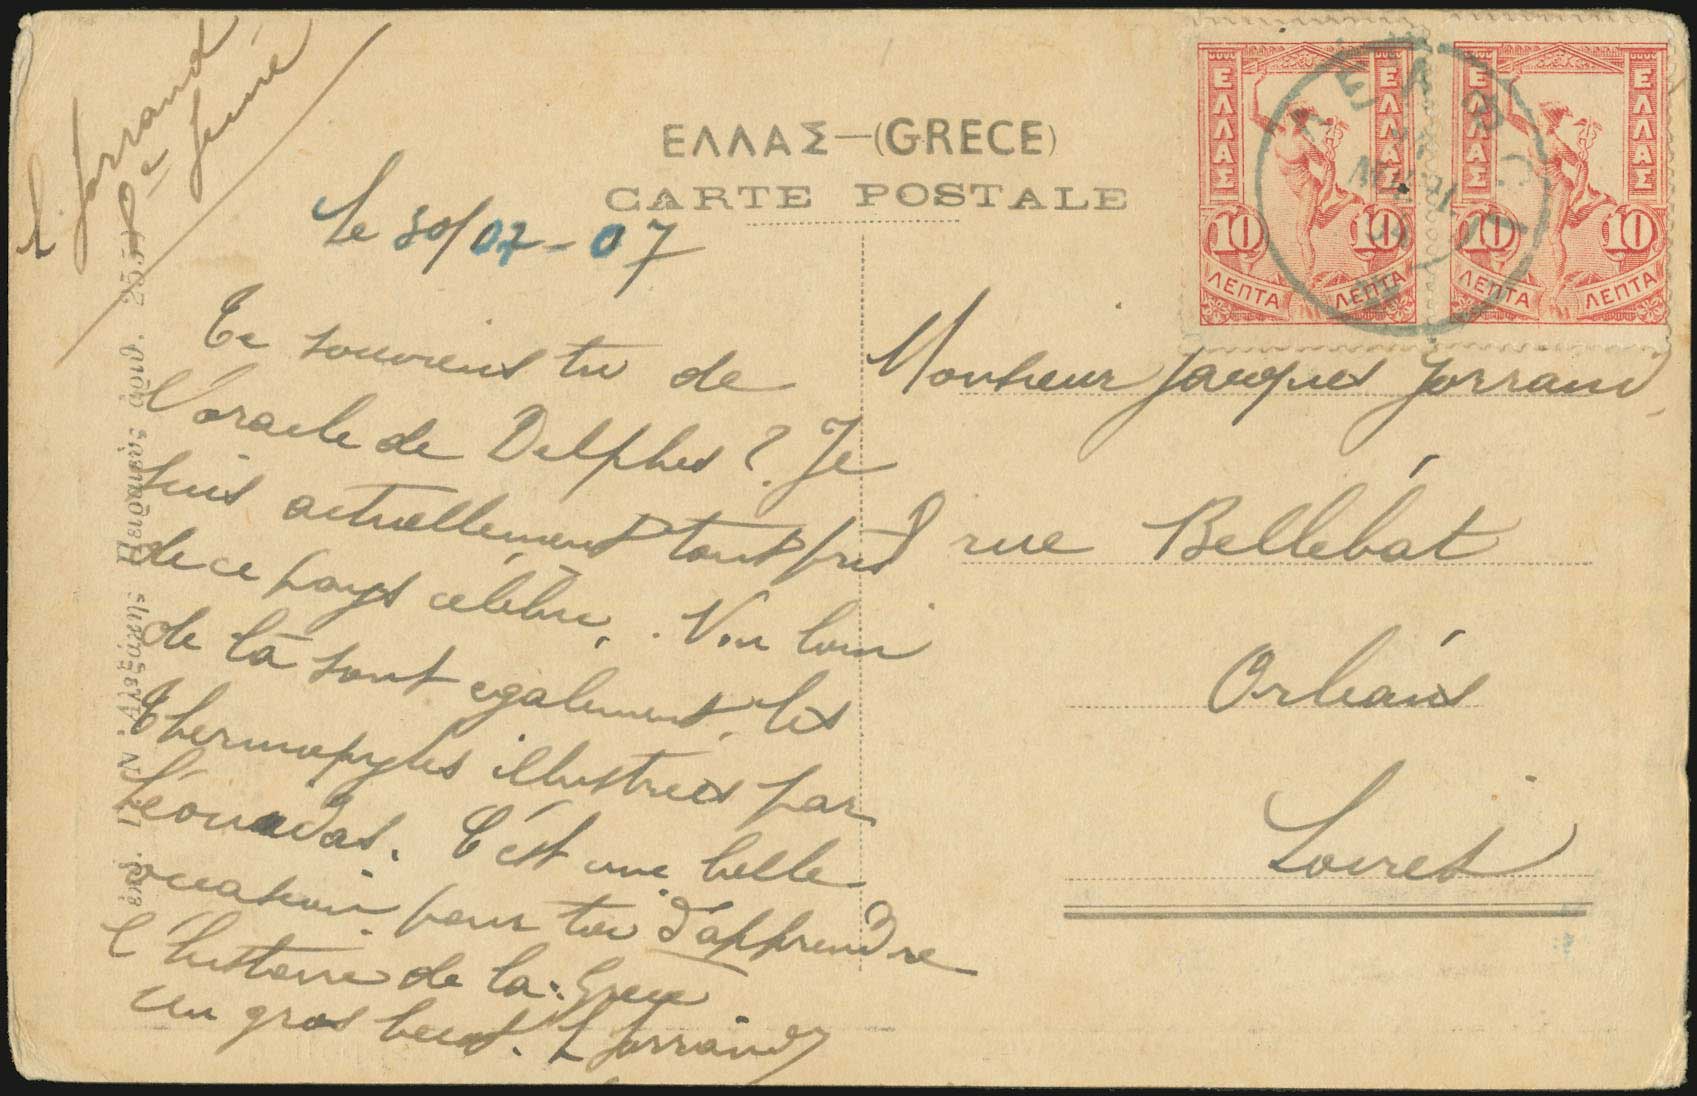 L. Jorrand
8e Génié
ΕΛΛΑΣ—(GRECE)
CARTE POSTALE
Le 30/07-07
Te souviens tu de
l'oracle de Delphes ? Je
suis actuellement tout près
de ce pays célèbre. Non loin
de là sont également les
Thermopyles illustrées par
Léonidas. C'est une belle
occasion pour toi d'apprendre
l'histoire de la Grèce
Un gros baiser. L Jorrand
Monsieur Jacques Jorrand
rue Bellebat
Orléans
Loiret
ΕΛΛΑΣ ΕΛΛΑΣ
10 10
ΛΕΠΤΑ ΛΕΠΤΑ
ΕΛΛΑΣ ΕΛΛΑΣ
10 10
ΛΕΠΤΑ ΛΕΠΤΑ
Ν. Αλεξάκης Πειραιεύς αριθ. 255